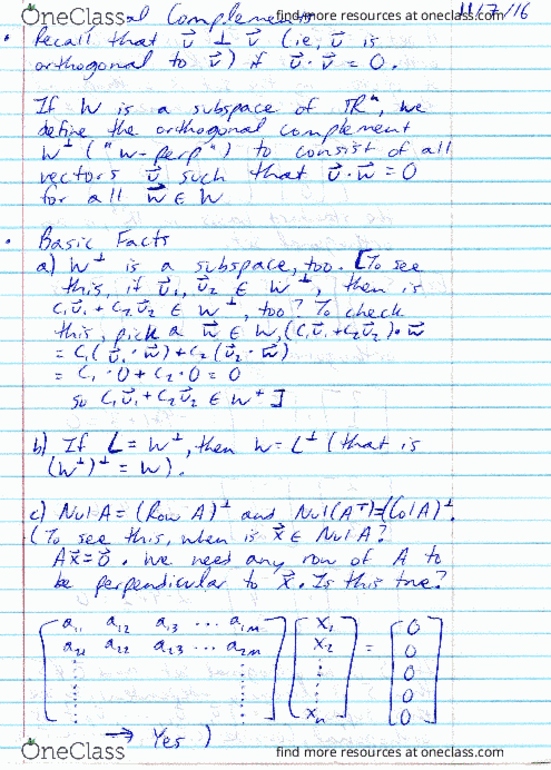 OneClass
find more resources at oneclass.com
11/7/16
al Complements
• Recall that v⃗ ⊥ v⃗ (ie, v⃗ is
orthogonal to v⃗) if v⃗ · v⃗ = 0.
If W is a subspace of ℝⁿ, we
define the orthogonal complement
W⊥ ("W-perp") to consist of all
vectors v⃗ such that v⃗ · w⃗ = 0
for all w⃗ ∈ W
• Basic Facts
a) W⊥ is a subspace, too. [To see
this, if v⃗₁, v⃗₂ ∈ W⊥, then is
c₁v⃗₁ + c₂v⃗₂ ∈ W⊥, too? To check
this, pick a w⃗ ∈ W, (c₁v⃗₁ + c₂v⃗₂) · w⃗
= c₁(v⃗₁ · w⃗) + c₂(v⃗₂ · w⃗)
= c₁ · 0 + c₂ · 0 = 0
so c₁v⃗₁ + c₂v⃗₂ ∈ W⊥]
b) If L = W⊥, then W = L⊥ (that is
(W⊥)⊥ = W).
c) Nul A = (Row A)⊥ and Nul(Aᵀ) = (Col A)⊥.
(To see this, when is x⃗ ∈ Nul A?
Ax⃗ = 0⃗. We need any row of A to
be perpendicular to x⃗. Is this true?
[a₁₁ a₁₂ a₁₃ ... a₁ₘ] [x₁] [0]
[a₂₁ a₂₂ a₂₃ ... a₂ₘ] [x₂] = [0]
[⋮ ⋮] [⋮] [0]
[⋮ ⋮] [⋮] [0]
[⋮ ⋮] [xₙ] [0]
→ Yes )
OneClass
find more resources at oneclass.com